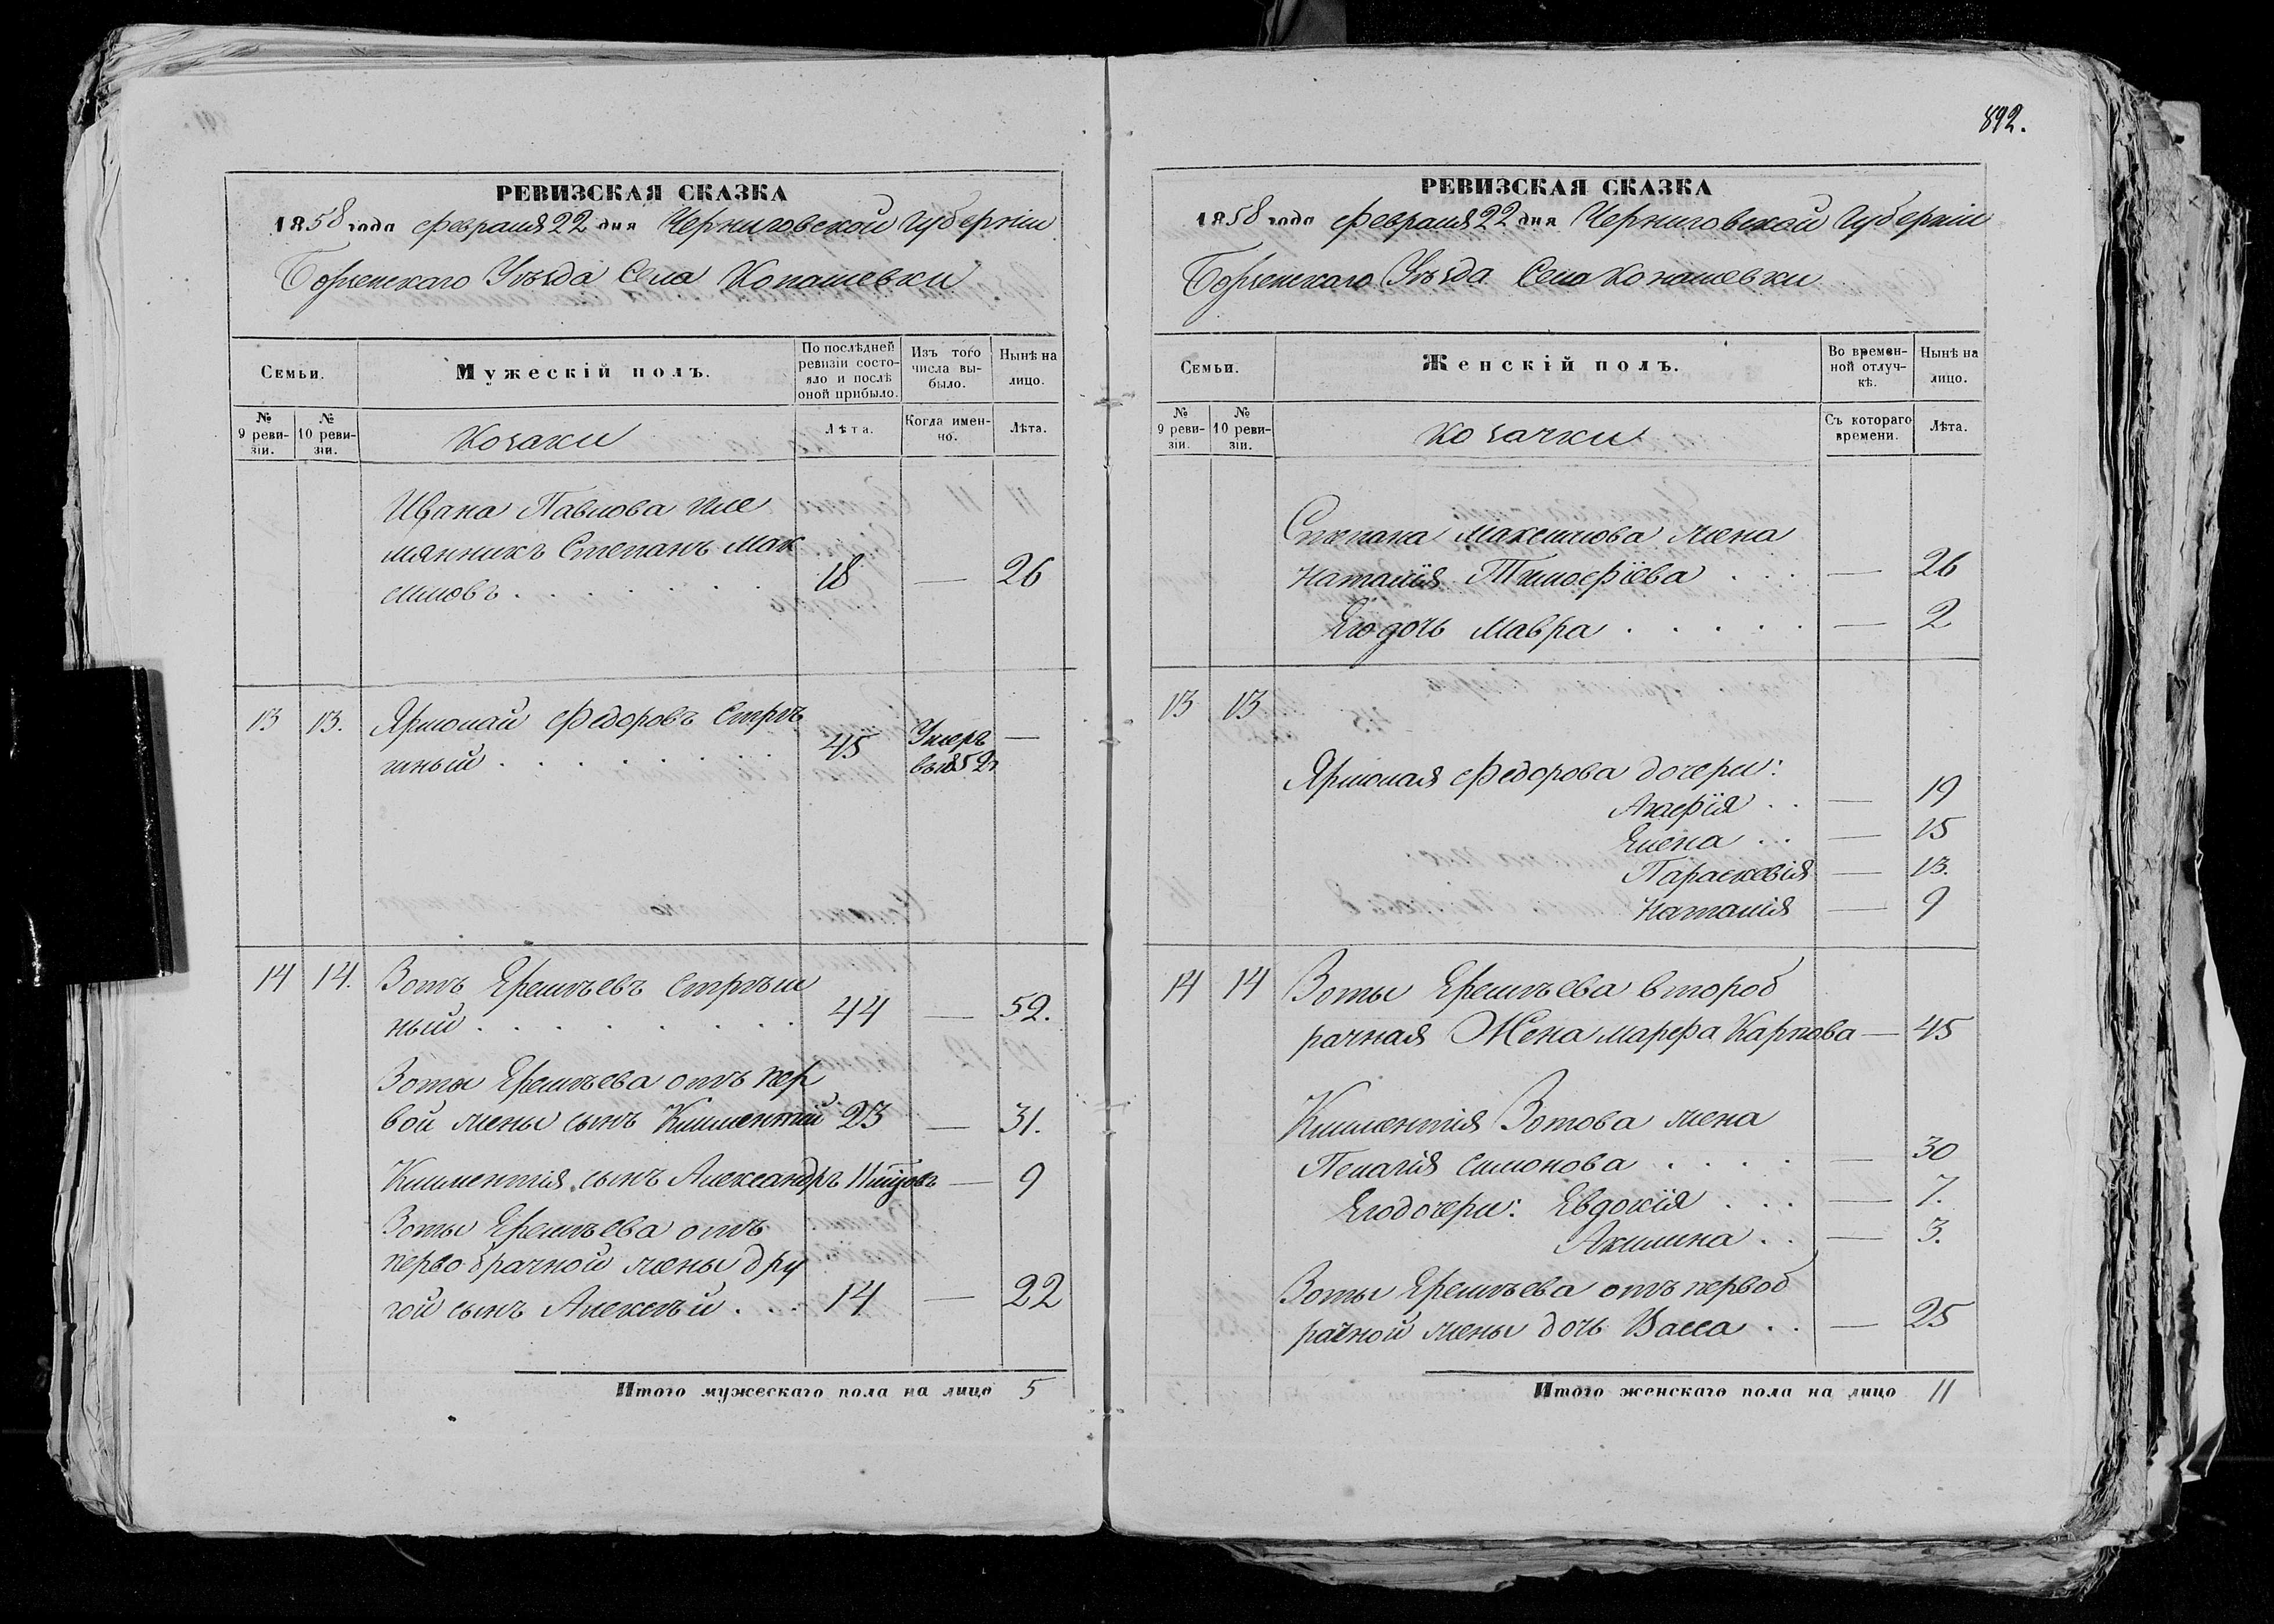 892.
РЕВИЗСКАЯ СКАЗКА
1858 года февраля 22 дня Черниговской Губерніи
Борзенскаго Уѣзда Села Коношевки
Семьи.
Мужескій полъ.
По послѣдней ревизіи состояло и послѣ оной прибыло.
Изъ того числа выбыло.
Нынѣ на лицо.
№ 9 ревизіи.
№ 10 ревизіи.
Козаки
Лѣта.
Когда именно.
Лѣта.
Ивана Павлова пле
мянникъ Степанъ Мак
симовъ . . . . . . . 18 — 26
13 13. Ярмолай Федоровъ Стрѣ
лный . . . . . . . . 45 Умеръ въ 1852 г —
14 14. Зотъ Еремѣевъ Стрѣль
ный . . . . . . . . . 44 — 52.
Зоты Еремѣева отъ пер
вой жены сынъ Климентий 23 — 31.
Климентія сынъ Александръ 11 мѣсяцовъ — 9
Зоты Еремѣева отъ
перво брачной жены дру
гой сынъ Алексѣй . . . 14 — 22
Итого мужескаго пола на лицо 5
РЕВИЗСКАЯ СКАЗКА
1858 года февраля 22 дня Черниговской Губерніи
Борзенскаго Уѣзда Села Коношевки
Семьи.
Женскій полъ.
Во временной отлучкѣ.
Нынѣ на лицо.
№ 9 ревизіи.
№ 10 ревизіи.
Козачки
Съ котораго времени.
Лѣта.
Степана Максимова жена
Наталія Тимофіева . . . — 26
Ею дочь Мавра . . . . . — 2
13 13
Ярмолая Федорова дочери:
Агафія . . — 19
Елена . . . — 15
Параскевія — 13.
Наталія — 9
14 14 Зоты Еремѣева второб
рачная Жена Марфа Карпова — 45
Климентія Зотова жена
Пелагія Симонова . . . . — 30
Ею дочери: Евдокія . . . — 7.
Акилина . . — 3.
Зоты Еремѣева отъ первоб
рачной жены дочь Васса . . — 25
Итого женскаго пола на лицо 11